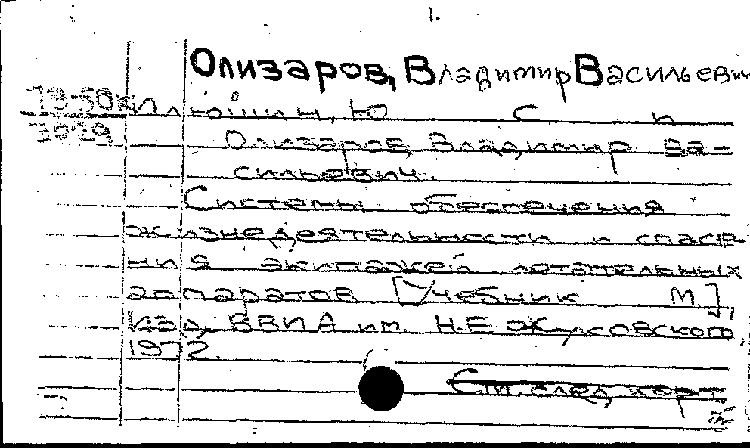 1.
Олизаров, Владимир Васильевич
73-50
Илюшин, Ю С и
3029
Олизаров, Владимир Ва-
сильевич.
Системы обеспечения
жизнедеятельности и спасе-
ния экипажей летательных
аппаратов [Учебник М],
Изд. ВВИА им. Н.Е Жуковского
1972.
См. след. карт